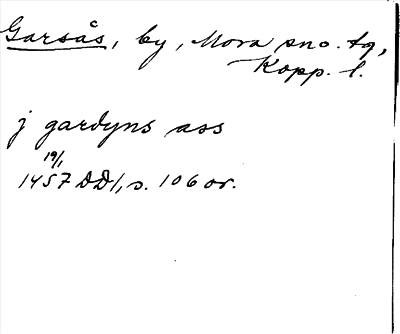 Garsås, by, Mora sno. tg,
Kopp. l.
j gardyns ass
19/1
1457 DD1, s. 106 or.